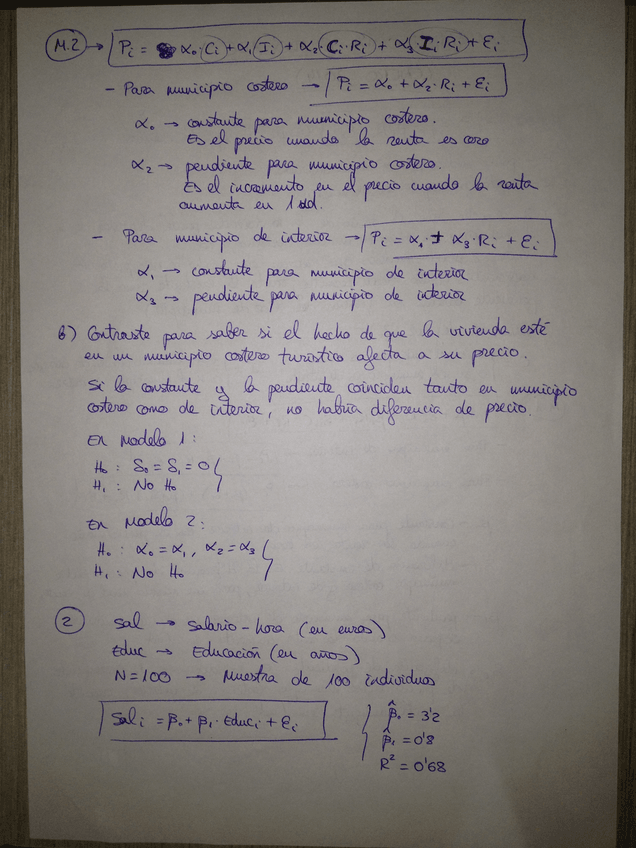 M.2 → Pi = α₀·Ci + α₁ Ii + α₂ Ci·Ri + α₃ Ii Ri + Ei
- Para municipio costero → Pi = α₀ + α₂·Ri + Ei
α₀ → constante para municipio costero.
Es el precio cuando la renta es cero
α₂ → pendiente para municipio costero.
Es el incremento en el precio cuando la renta
aumenta en 1 ud.
- Para municipio de interior → Pi = α₁ + α₃·Ri + Ei
α₁ → constante para municipio de interior
α₃ → pendiente para municipio de interior
b) Contraste para saber si el hecho de que la vivienda esté
en un municipio costero turístico afecta a su precio.
Si la constante y la pendiente coinciden tanto en municipio
costero como de interior, no habría diferencia de precio.
En Modelo 1:
H₀ : δ₀ = δ₁ = 0
H₁ : No H₀
En Modelo 2:
H₀ : α₀ = α₁, α₂ = α₃
H₁ : No H₀
2 Sal → Salario-hora (en euros)
Educ → Educación (en años)
N=100 → Muestra de 100 individuos
Sali = β₀ + β₁·Educi + Ei
β̂₀ = 3'2
β̂₁ = 0'8
R² = 0'68